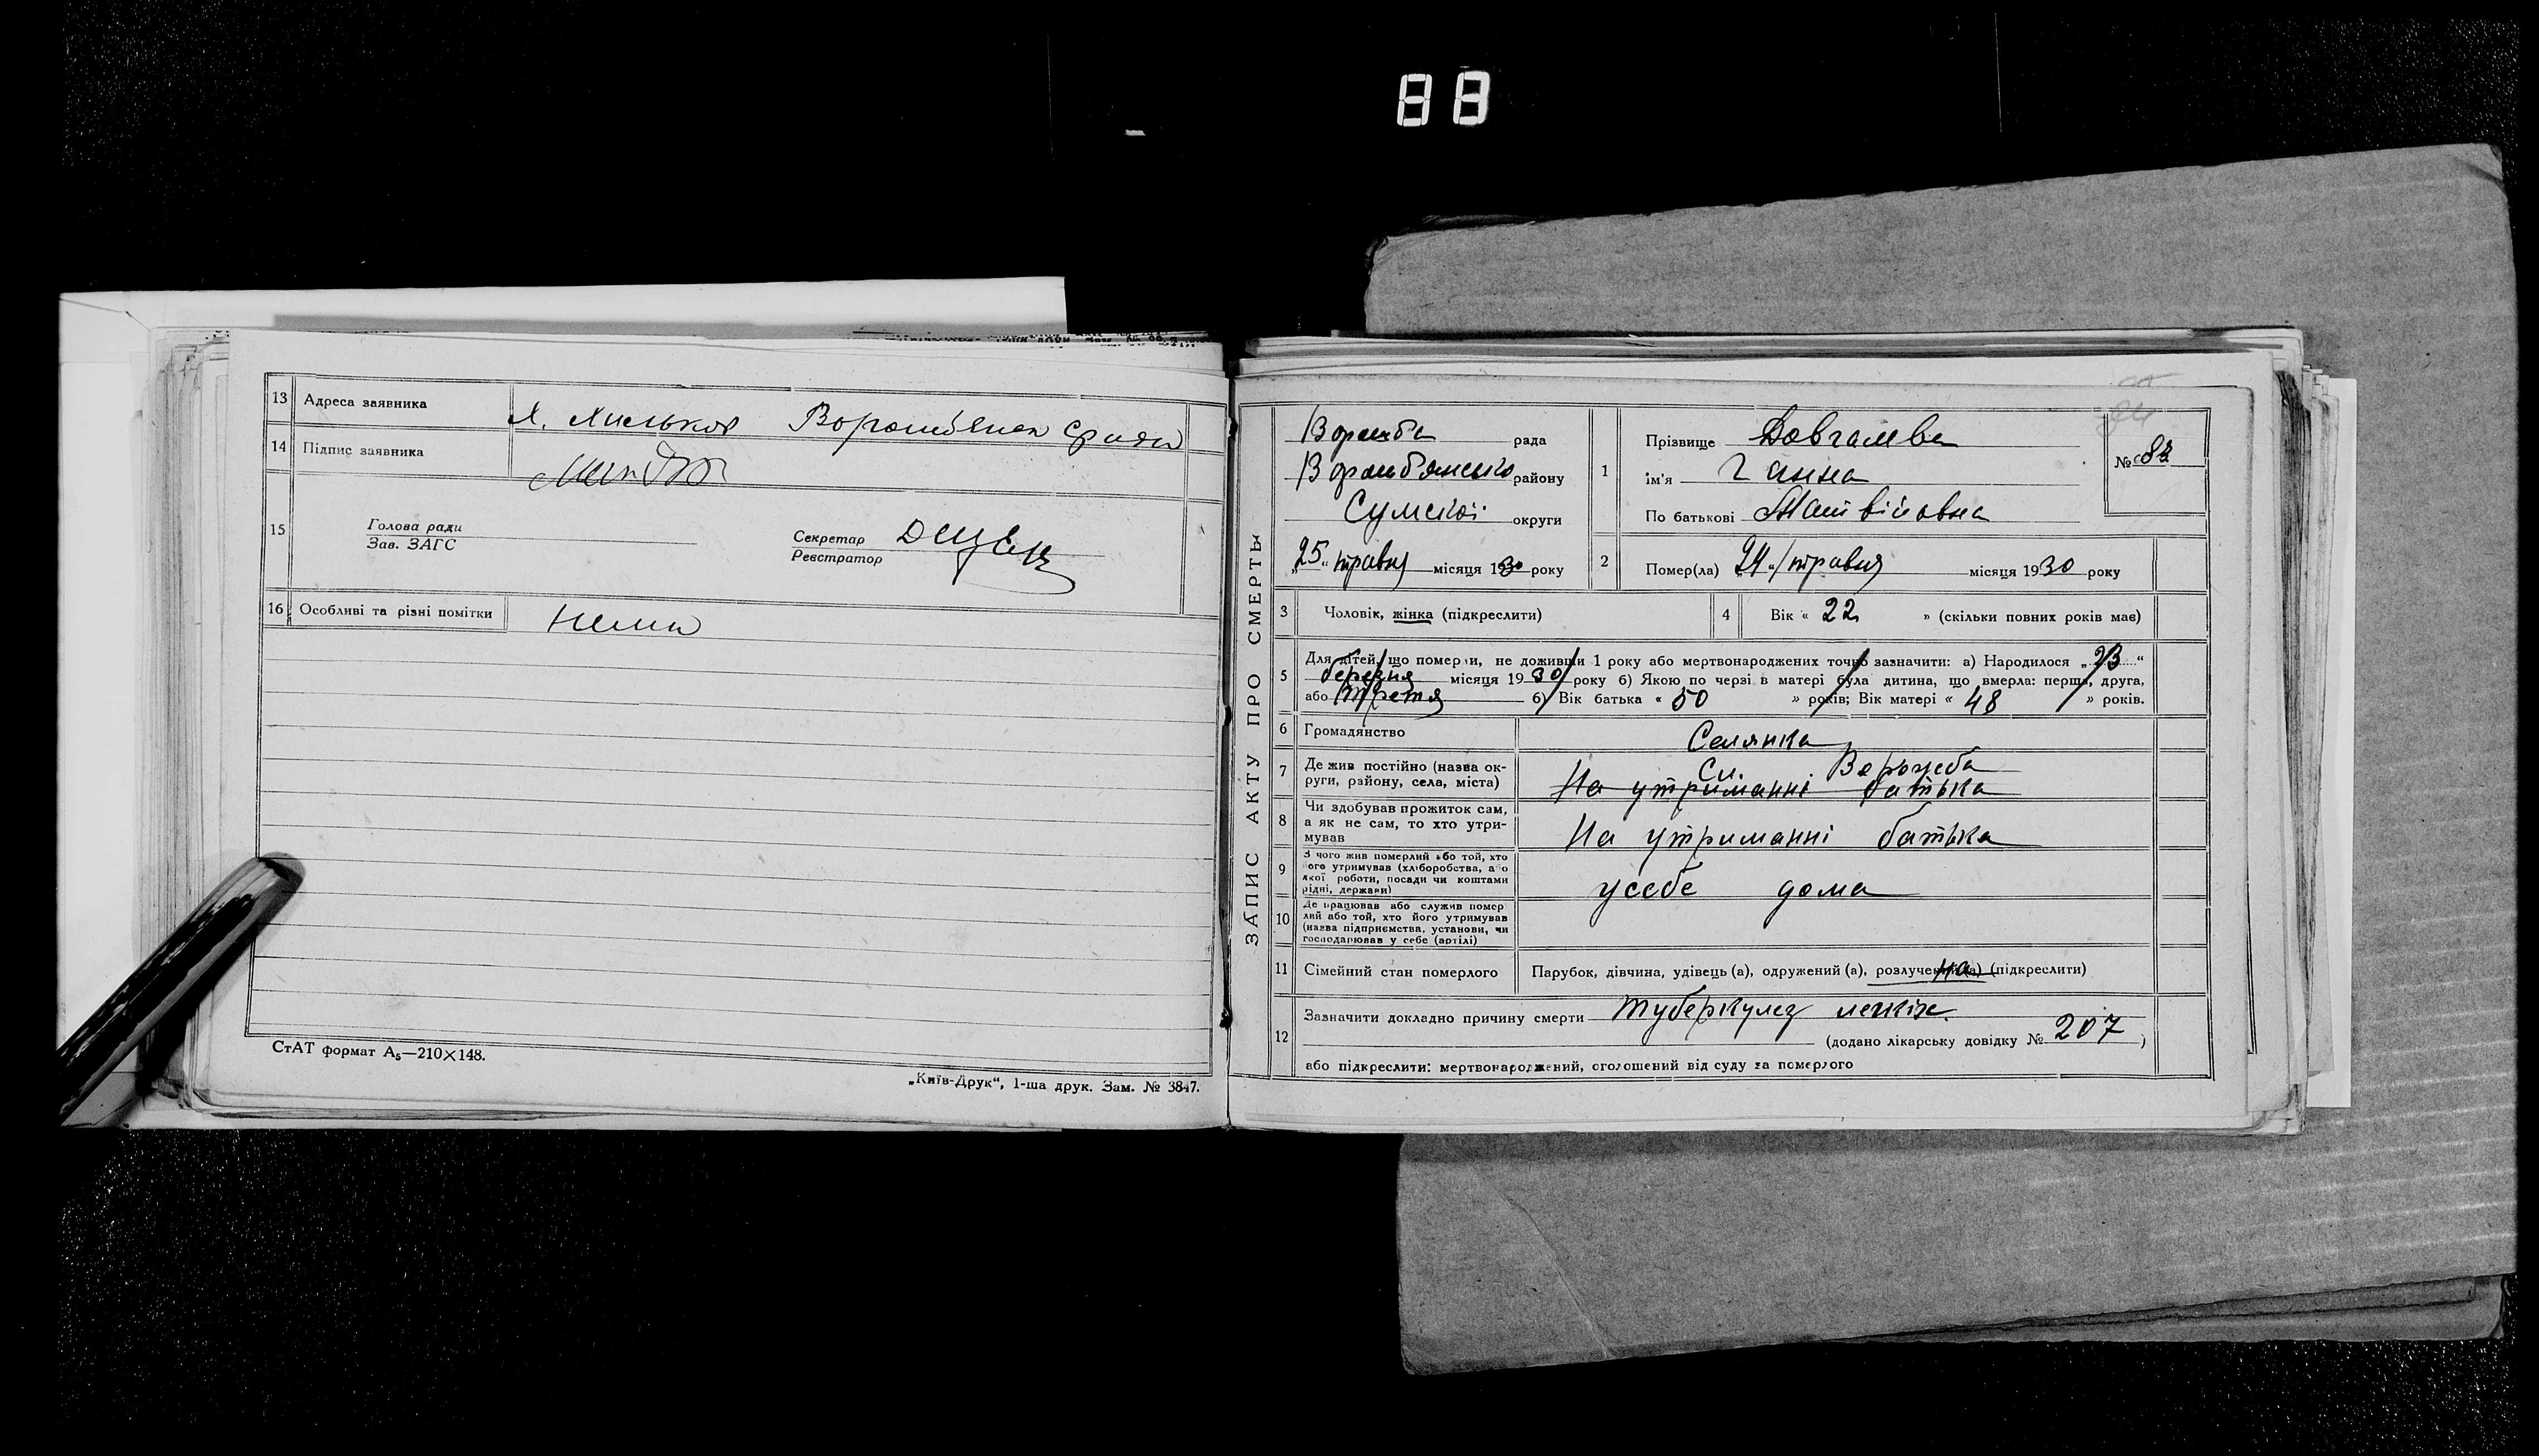 88
13 Адреса заявника
14 Підпис заявника
15 Голова ради
Зав. ЗАГС
Секретар
Реєстратор
16 Особливі та різні помітки нема
СтАТ формат А₅—210×148.
„Київ-Друк“, 1-ша друк. Зам. № 3847.
ЗАПИС АКТУ ПРО СМЕРТЬ
Ворожба рада
району
Сумської округи
„25“ травня місяця 1930 року
1 Прізвище
ім'я Ганна
По батькові Матвійовна
№ 83
2 Помер(ла) „24“ травня місяця 1930 року
3 Чоловік, жінка (підкреслити)
4 Вік « 22 » (скільки повних років має)
5 Для дітей, що померли, не доживши 1 року або мертвонароджених точно зазначити: а) Народилося „23“
березня місяця 1930 року б) Якою по черзі в матері була дитина, що вмерла: перша, друга,
або третя б) Вік батька « 50 » років; Вік матері « 48 » років.
6 Громадянство Селянка
7 Де жив постійно (назва ок-
руги, району, села, міста) См. Ворожба
На утриманні батька
8 Чи здобував прожиток сам,
а як не сам, то хто утри-
мував На утриманні батька
9 З чого жив померлий або той, хто
його утримував (хліборобства, або
якої роботи, посади чи коштами
рідні, держави) усебе дома
10 Де працював або служив помер
лий або той, хто його утримував
(назва підприємства, установи, чи
господарював у себе (артілі)
11 Сімейний стан померлого Парубок, дівчина, удівець (а), одружений (а), розлучений (а) (підкреслити)
12 Зазначити докладно причину смерти туберкулез легкіх
(додано лікарську довідку № 207 )
або підкреслити: мертвонароджений, оголошений від суду за померлого